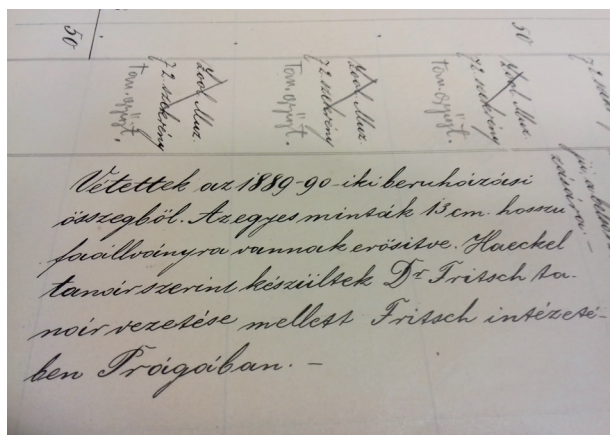 50
50
Zool. Muz.
72. szekrény
Tan. gyűjt.
Zool. Muz.
72. szekrény
Tan. gyűjt.
Zool. Muz.
72. szekrény
Tan. gyűjt.
Vétettek az 1889-90-iki beruházási
összegből. Az egyes minták 13 cm. hosszu
faállványra vannak erősitve. Haeckel
tanár szerint készültek Dr Fritsch ta-
nár vezetése mellett Fritsch intézeté-
ben Prágában. –